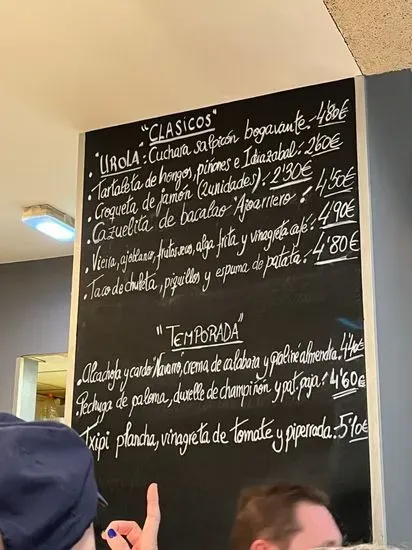 "CLASICOS"
. "UROLA: Cuchara salpicón bogavante.- 4'80€
. Tartaleta de hongos, piñones e Idiazabal.- 2'60€
. Croqueta de jamón (2 unidades).- 2'30€
. Cazuelita de bacalao Ajoarriero.- 4'50€
. Vieira, ajoblanco, frutos secos, alga frita y vinagreta café.- 4'90€
. Taco de chuleta, piquillos y espuma de patata.- 4'80€
"TEMPORADA"
. Alcachofa y cardo Navarro, crema de calabaza y praliné almendra.- 4'40€
. Pechuga de paloma, duxelle de champiñón y pat. paja.- 4'60€
. Txipi plancha, vinagreta de tomate y piperrada.- 5'10€